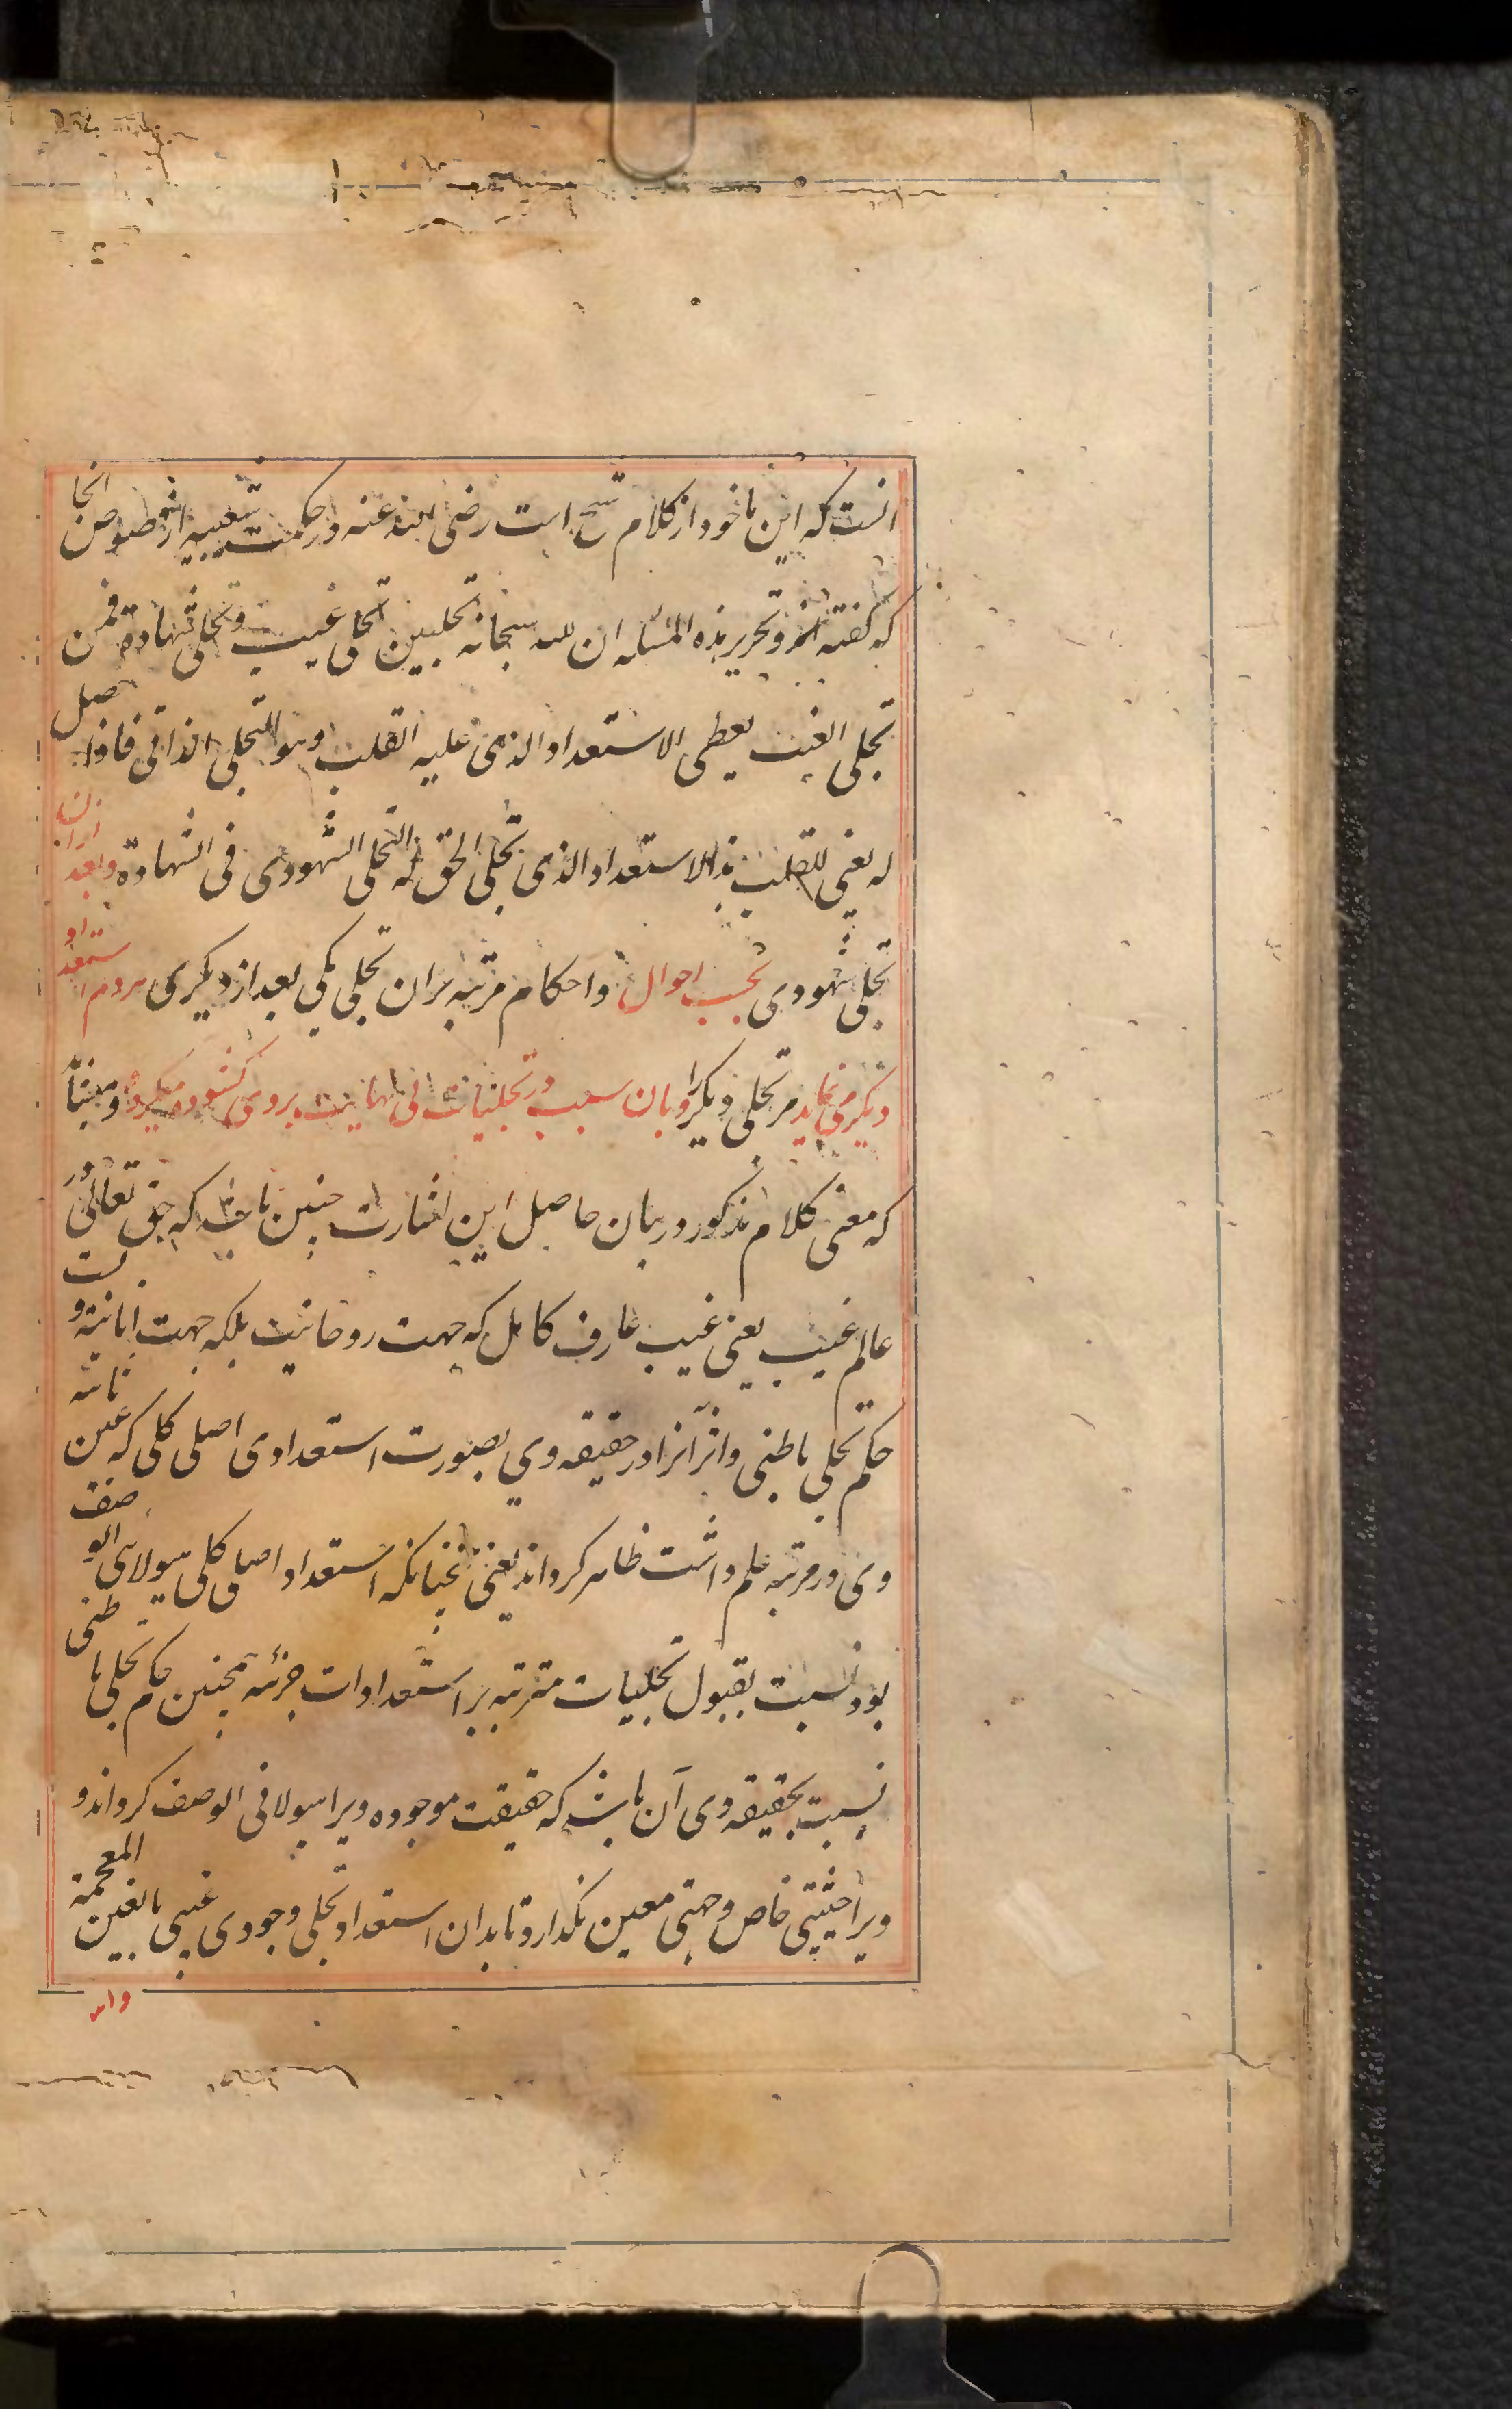 انست که این ماخود از کلام شیخ است رضی الله عنه در حکمت شعیبیه از فصوص انجا
که گفته اند و تحریر هذه المسئله ان لله سبحانه تجلیین تجلی غیب و تجلی شهادة فمن
تجلی الغیب یعطی الاستعداد الذی علیه القلب و هو التجلی الذاتی فاذا حصل
له یعنی للقلب هذا الاستعداد الذی تجلی الحق له التجلی الشهودی فی الشهادة و بعد ازان
تجلی شهودی بحسب احوال و احکام مرتبه بران تجلی یکی بعد از دیکری مردم استعداد
دیکر می نماید مر تجلی دیکر را و بان سبب در تجلیات بی نهایت بروی کشوده میکردد و
که معنی کلام مذکور در بیان حاصل این اشارت چنین باشد که حق تعالی در
عالم غیب یعنی غیب عارف کامل که جهت روحانیت بلکه جهت انانیته و یست
حکم تجلی باطنی و اثر آنرا در حقیقه وی بصورت استعدادی اصلی کلی که عین ثابته
وی در مرتبه علم داشت ظاهر کرداند یعنی نجنانکه استعداد اصلی کلی هیولای الوصف
بود نسبت بقبول تجلیات مترتبه بر استعدادات جزئیه همچنین حکم تجلی باطنی
نسبت بحقیقه وی آن باشد که حقیقت موجوده ویرا هیولانی الوصف کرداند و
ویرا حیثیتی خاص و جهتی معین نکذارد تا بدان استعداد تجلی وجودی غیبی بالغین المعجمة